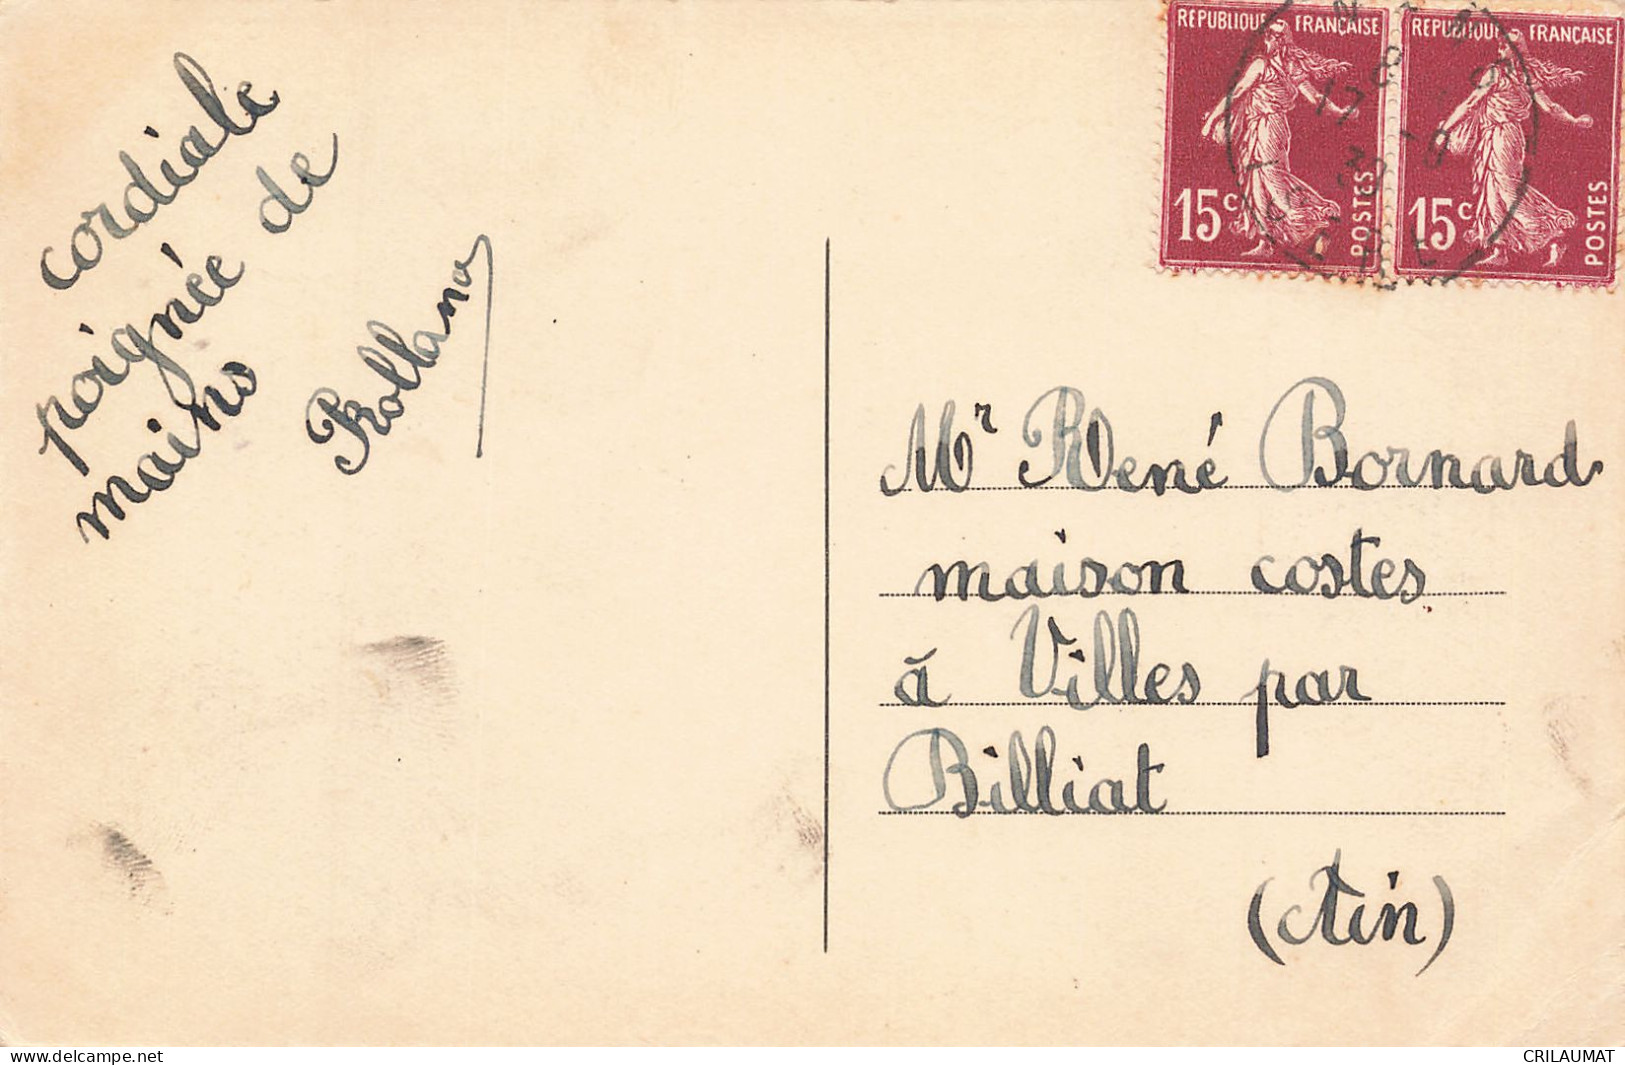 cordiale
poignée de
mains
RÉPUBLIQUE FRANÇAISE
15c
POSTES
RÉPUBLIQUE FRANÇAISE
15c
POSTES
Mr René Bornard
maison costes
à Villes par
Billiat
(Ain)
delcampe.net
CRILAUMAT